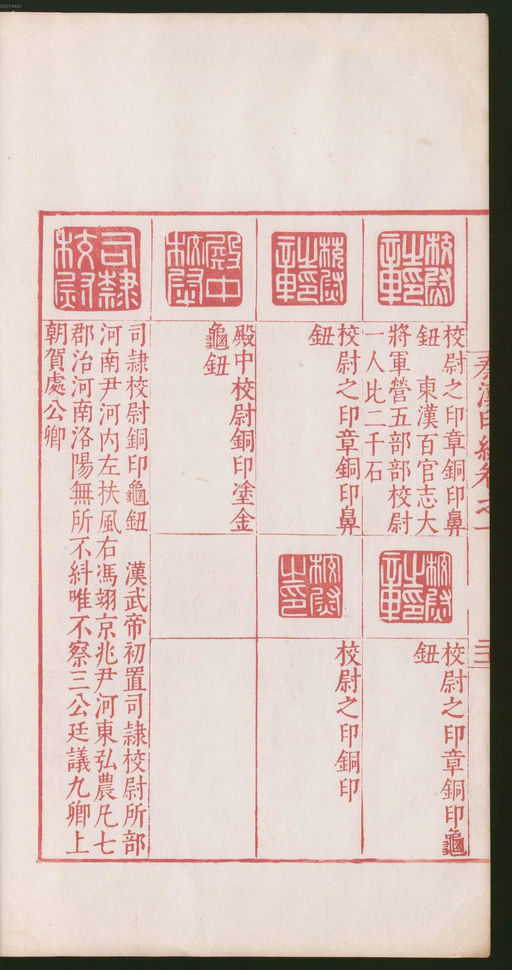 00073467
秦漢印統卷之一
校尉之印章
校尉之印章銅印鼻
鈕　東漢百官志大
將軍營五部部校尉
一人比二千石
校尉之印章
校尉之印章銅印龜
鈕
校尉之印章
校尉之印章銅印鼻
鈕
校尉之印
校尉之印銅印
殿中校尉
殿中校尉銅印塗金
龜鈕
司隸校尉
司隸校尉銅印龜鈕　漢武帝初置司隸校尉所部
河南尹河內左扶風右馮翊京兆尹河東弘農凡七
郡治河南洛陽無所不糾唯不察三公廷議九卿上
朝賀處公卿